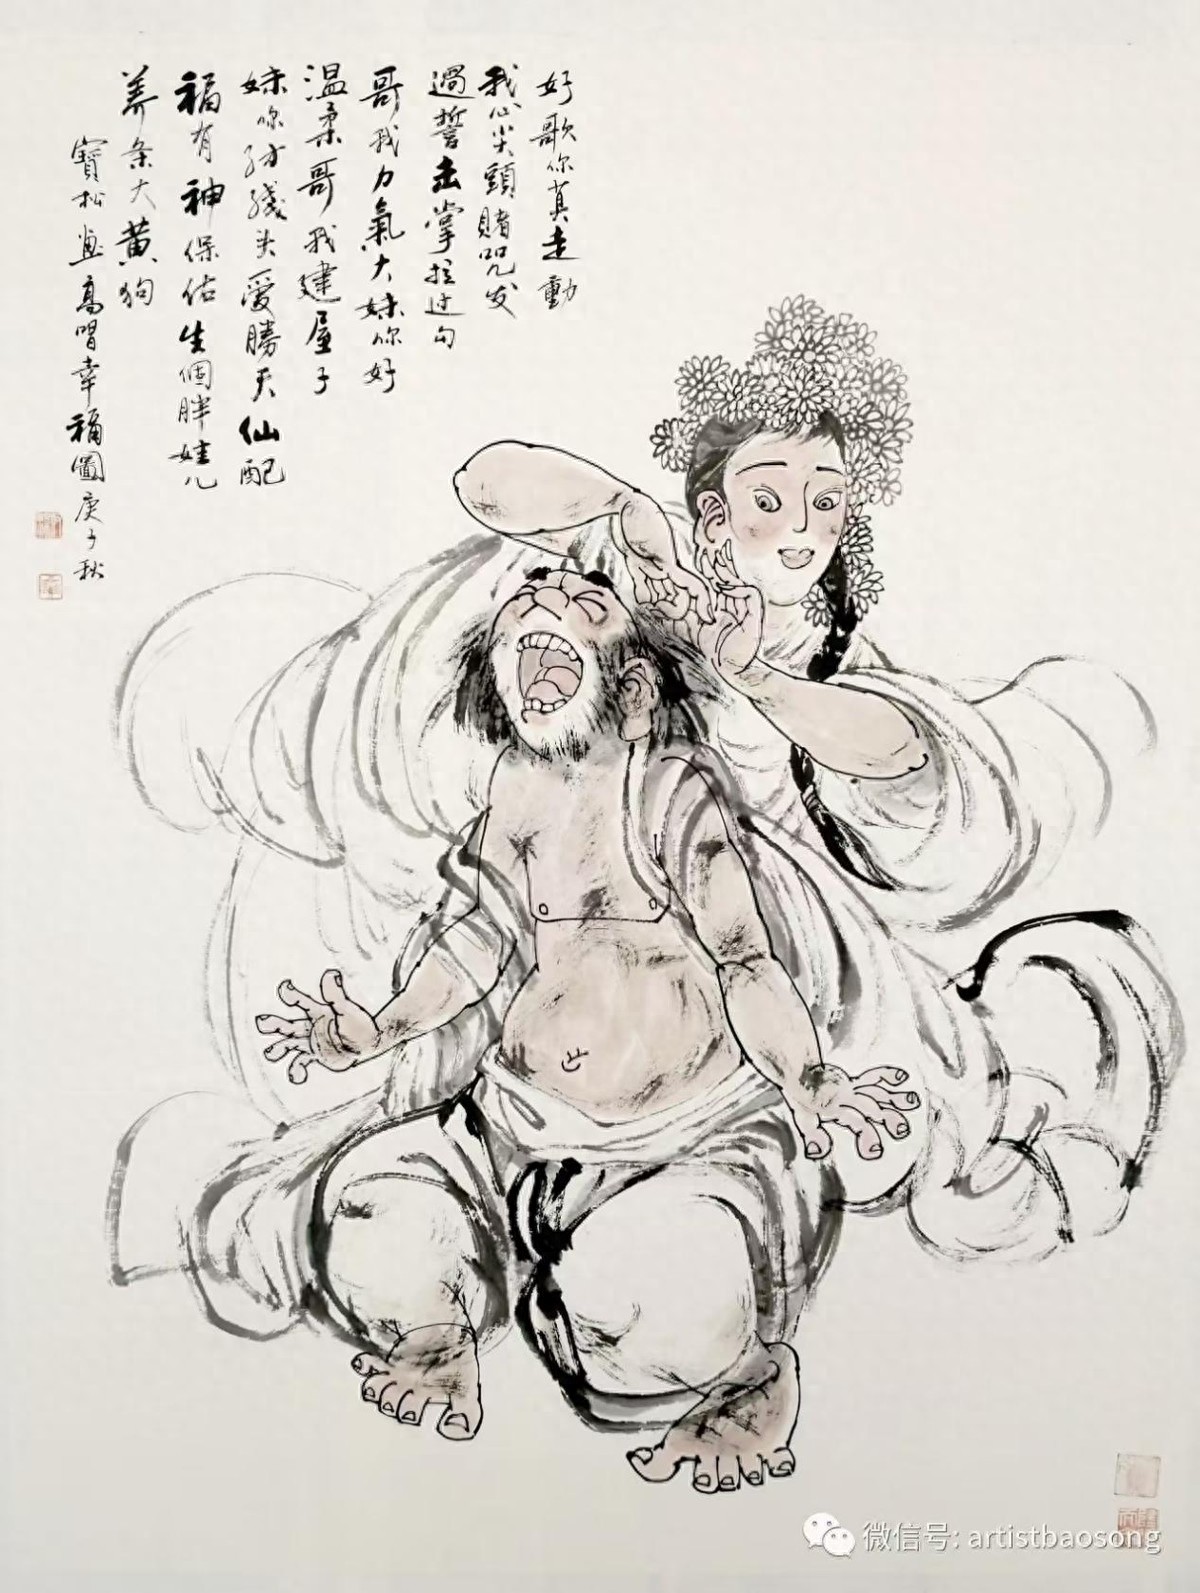 好歌你真走動
我心尖頭賭咒发
過誓击掌拉过勾
哥我力氣大妹你好
温柔哥我建屋子
妹你纺线头愛勝天仙配
福有神保佑生個胖娃儿
养条大黄狗
寶松画高唱幸福圖庚子秋
微信号: artistbaosong